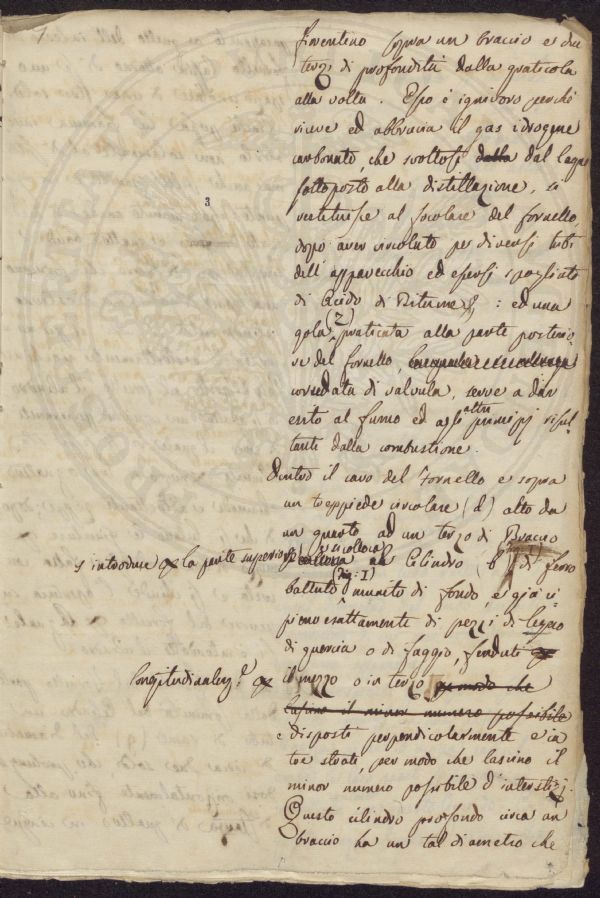 3
fiorentino sopra un braccio e due
terzi di profondità dalla graticola
alla volta. Esso è ignivoro perchè
riceve ed abbrucia il gas idrogene
carbonato, che svoltosi dalla dal legno
sottoposto alla distillazione, si
restituisce al focolare del fornello,
dopo aver circolato per diversi tubi
dell'apparecchio ed essersi spogliato
di Acido di Bitume &: ed una
gola (2) praticata alla parte posterio
re del fornello,
corredata di valvula, serve a dar
esito al fumo ed agli altri principj risul-
tanti dalla combustione.
Dentro il cavo del Fornello e sopra
un treppiede circolare (d) alto da
un quarto ad un terzo di Braccio
s'introduce per la parte superiore, e si colloca un Cilindro (b fig: 1) di ferro
battuto (fig: I) munito di fondo, e già ri
pieno esattamente di pezzi di legno
di quercia o di faggio, fenduti
longitudinalmte
il mezzo o in terzo per modo che
lascino il minor numero possibile
e disposti perpendicolarmente e in
tre strati, per modo che lascino il
minor numero possibile d'interstizj.
Questo cilindro profondo circa un
braccio ha un tal diametro che